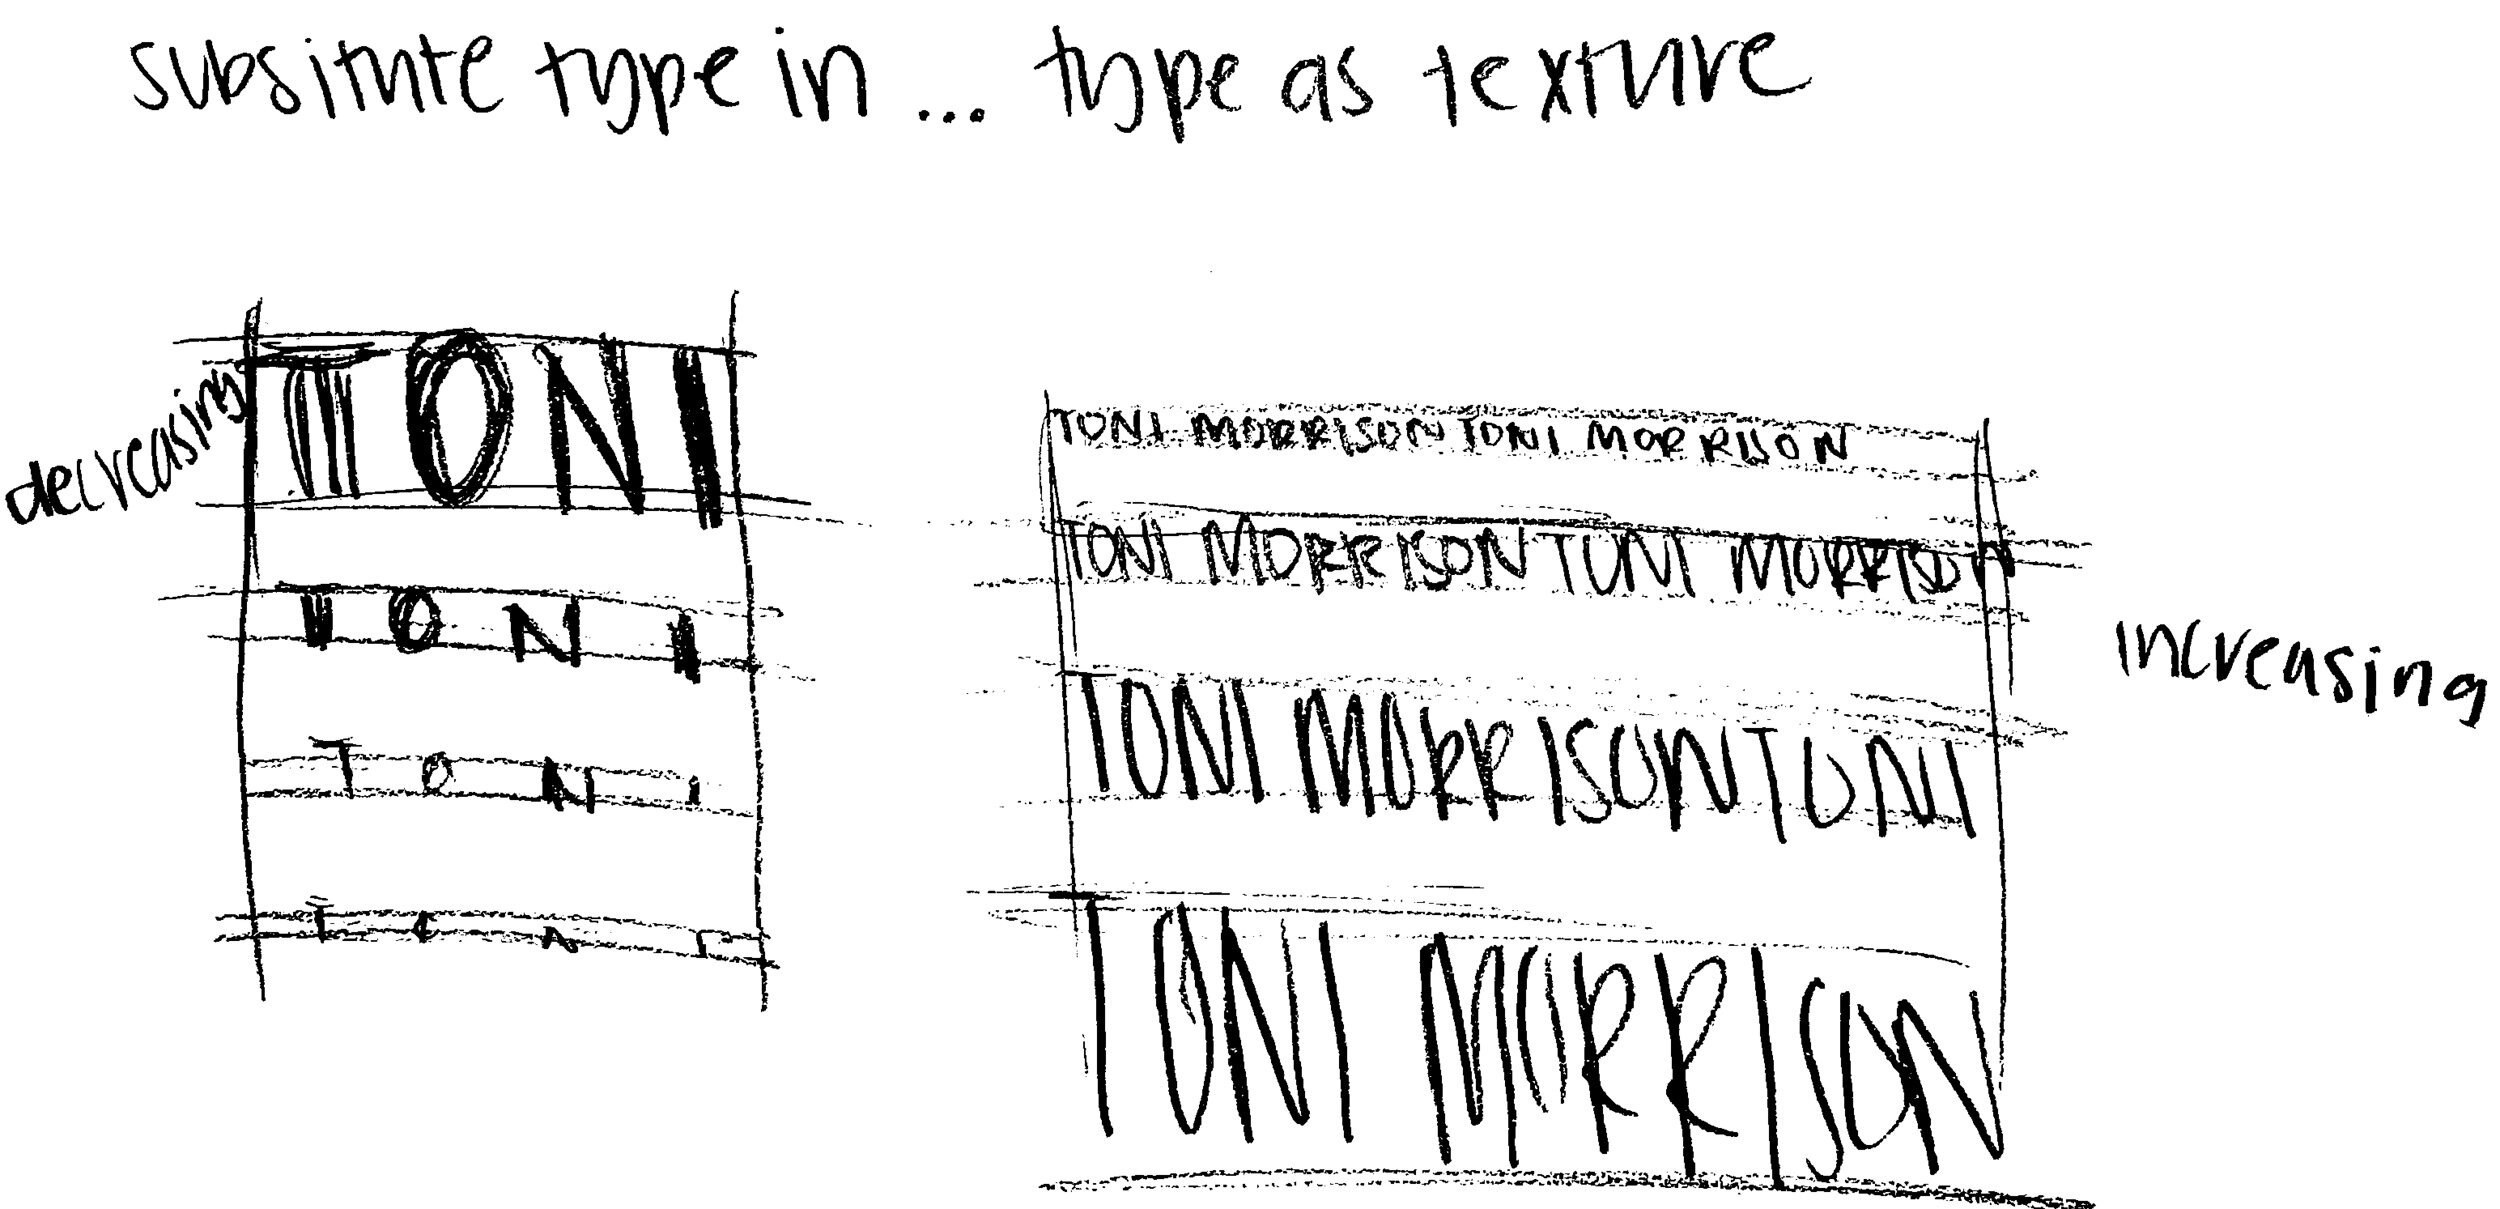 subsitute type in ... type as texture
decreasing
TONI
TONI
TONI
TONI
TONI MORRISON TONI MORRISON
TONI MORRISON TONI MORRISON
TONI MORRISON TONI
TONI MORRISON
increasing